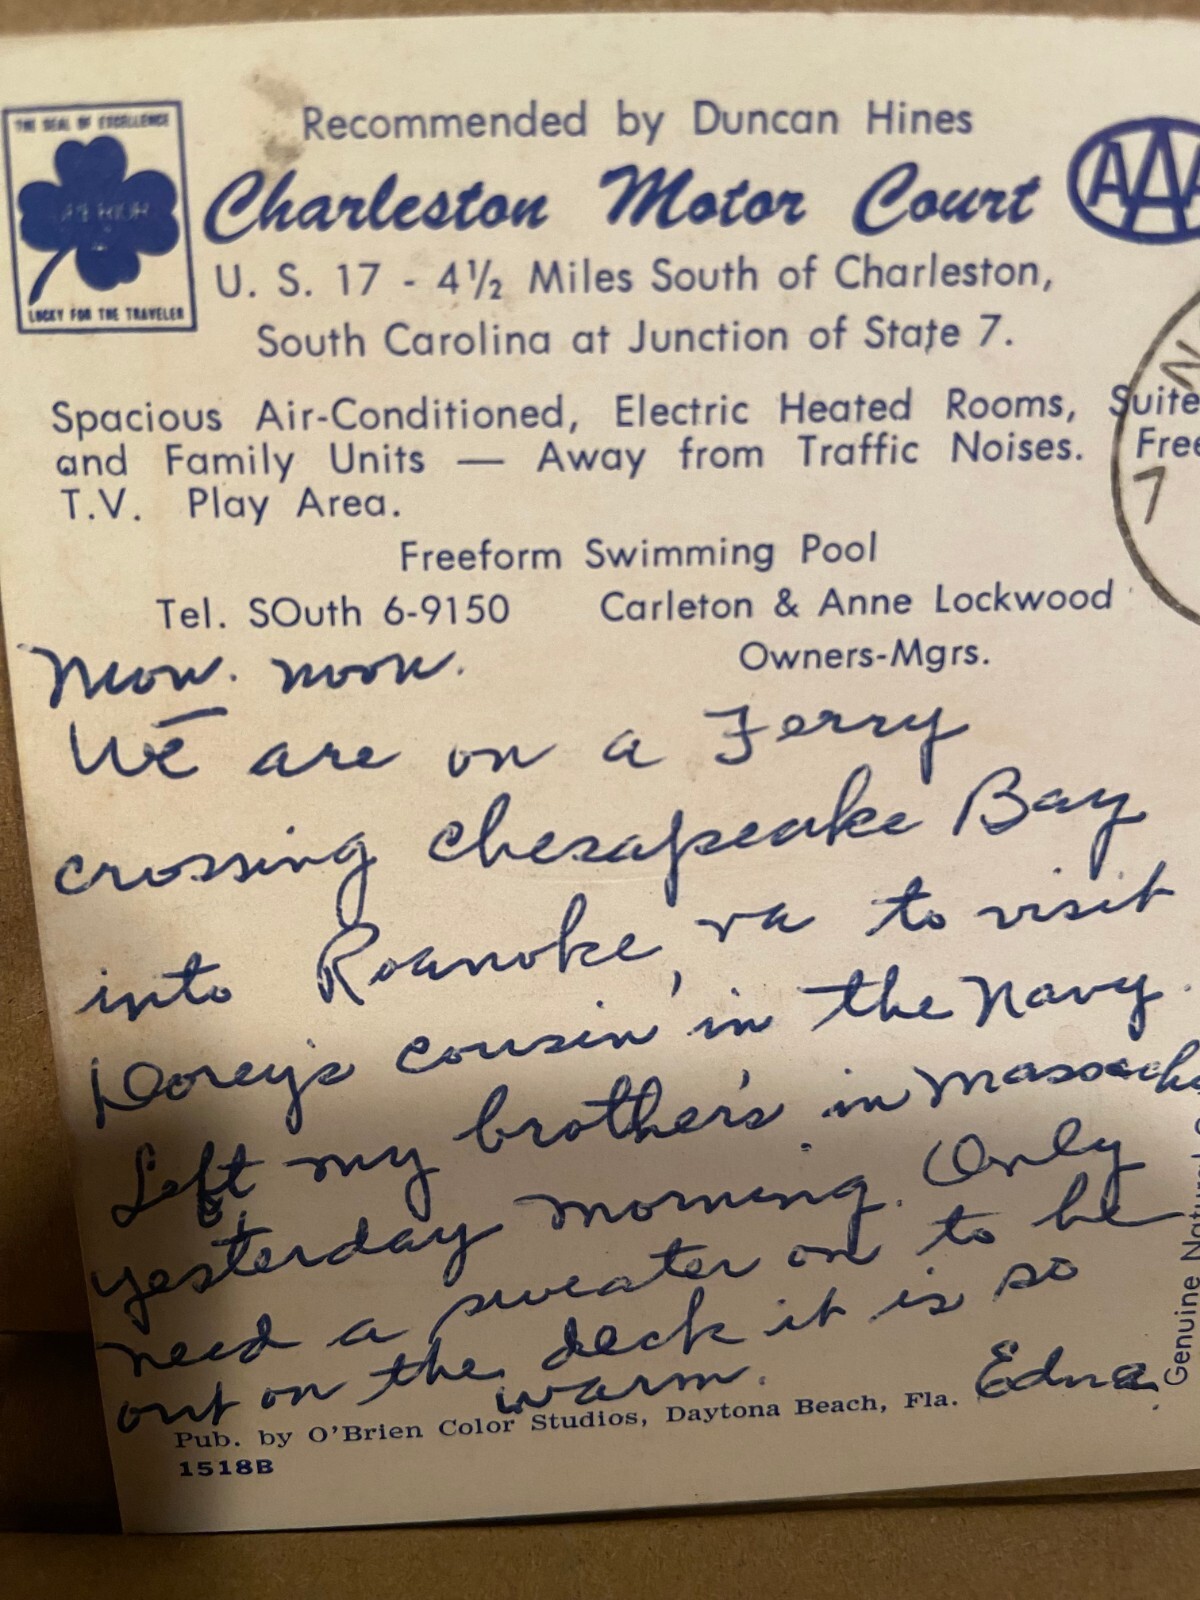 THE SEAL OF EXCELLENCE
SUPERIOR
LUCKY FOR THE TRAVELER
Recommended by Duncan Hines
AAA
Charleston Motor Court
U. S. 17 - 4½ Miles South of Charleston,
South Carolina at Junction of State 7.
Spacious Air-Conditioned, Electric Heated Rooms, Suite
and Family Units — Away from Traffic Noises. Free
T.V. Play Area.
Freeform Swimming Pool
Tel. SOuth 6-9150 Carleton & Anne Lockwood
Owners-Mgrs.
N
7
Mon. noon.
We are on a Ferry
crossing Chesapeake Bay
into Roanoke, va to visit
Dorey's cousin in the Navy.
Left my brother's in Massach
yesterday morning. Only
need a sweater on to be
out on the deck it is so
warm. Edna.
Pub. by O'Brien Color Studios, Daytona Beach, Fla.
1518B
Genuine Natural C